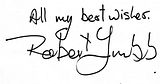 All my best wishes.
Robert